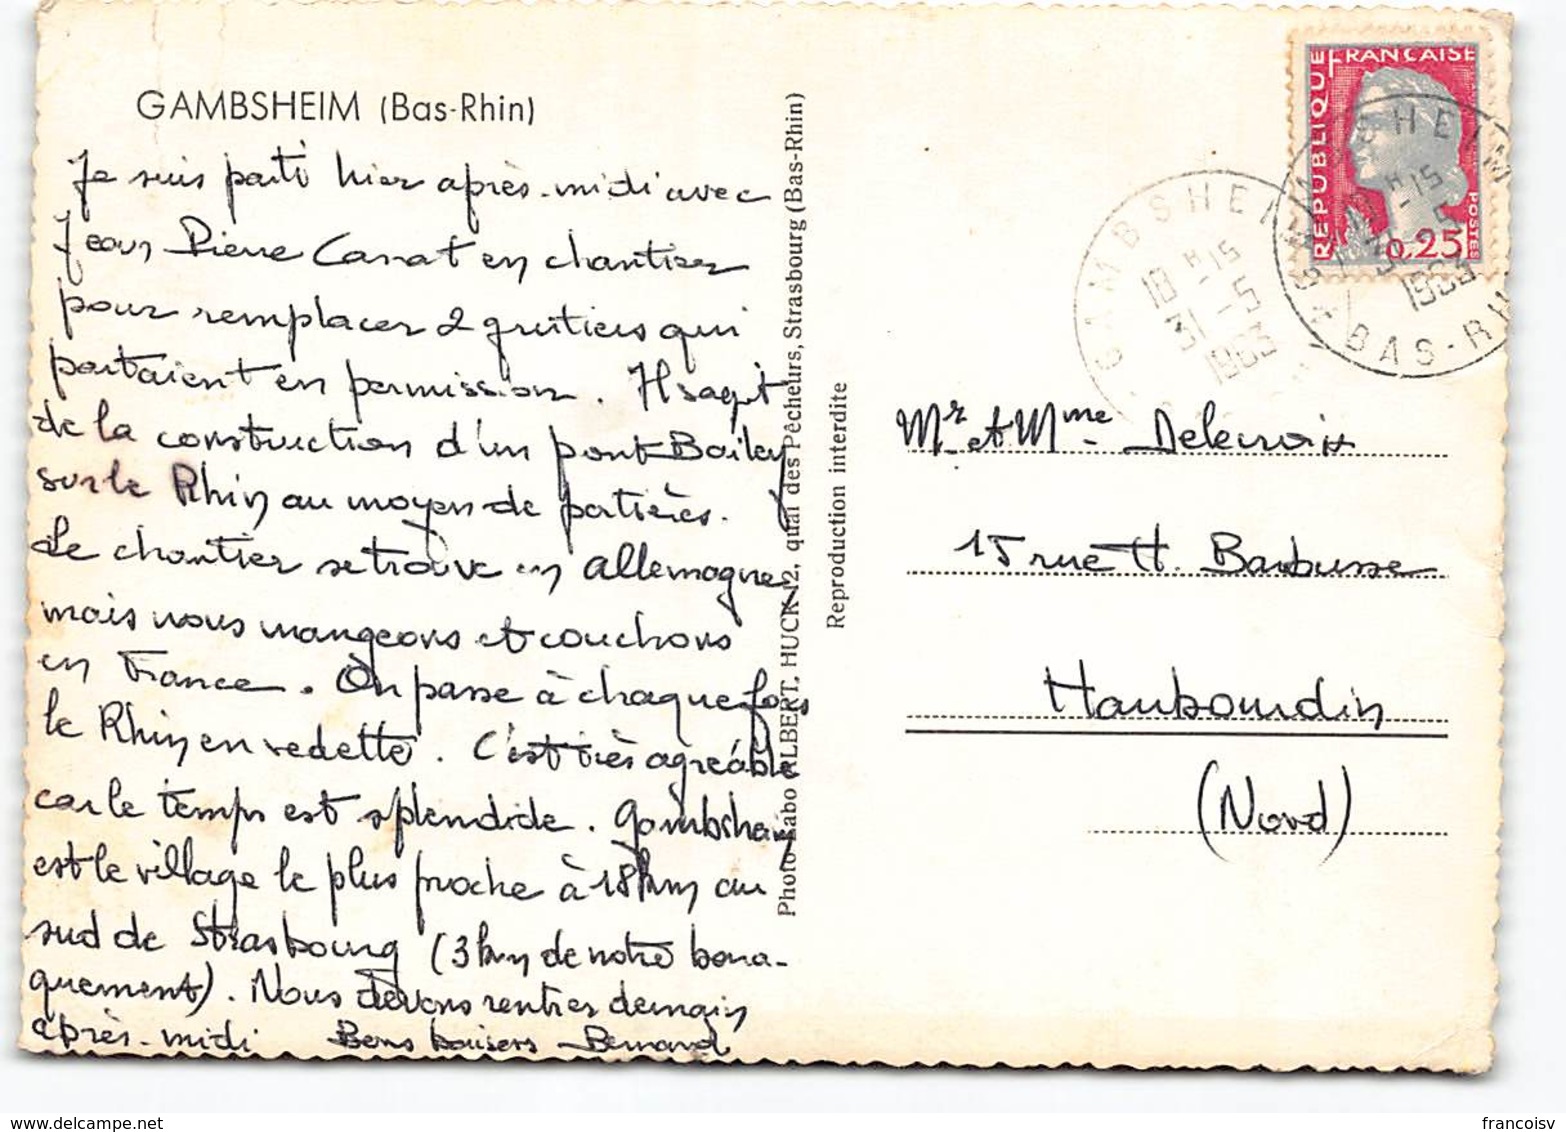 GAMBSHEIM (Bas-Rhin)
Je suis parti hier après-midi avec
Jean Pierre Canat en chantier
pour remplacer 2 grutiers qui
partaient en permission. Il s'agit
de la construction d'un pont Bailey
sur le Rhin au moyen de portières.
Le chantier se trouve en Allemagne
mais nous mangeons et couchons
en France. On passe à chaque fois
le Rhin en vedette. C'est très agréable
car le temps est splendide. Gambsheim
est le village le plus proche à 18km au
sud de Strasbourg (3km de notre bara-
quement). Nous devons rentrer demain
après-midi Bons baisers Bernard
Photo Labo ALBERT, HUCK 12, quai des Pêcheurs, Strasbourg (Bas-Rhin)
Reproduction interdite
RÉPUBLIQUE FRANÇAISE
POSTES
0,25
GAMBSHEIM
18H-15
31-5
1963
GAMBSHEIM
18H-15
31-5
1963
BAS-RH
Mr et Mme Delecroix
15 rue H. Barbusse
Haubourdin
(Nord)
www.delcampe.net
francoisv